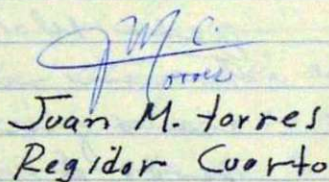 JM C.
Torres
Juan M. torres
Regidor Cuarto